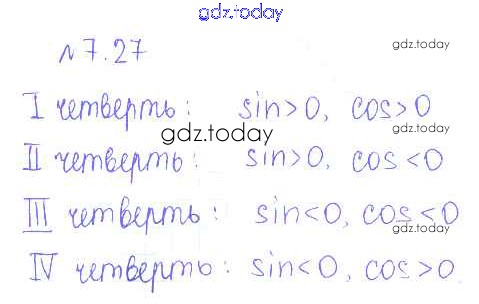 gdz.today
№7.27
gdz.today
I четверть: sin>0, cos>0
gdz.today
gdz.today
II четверть: sin>0, cos<0
III четверть: sin<0, cos<0
gdz.today
IV четверть: sin<0, cos>0
gdz.today